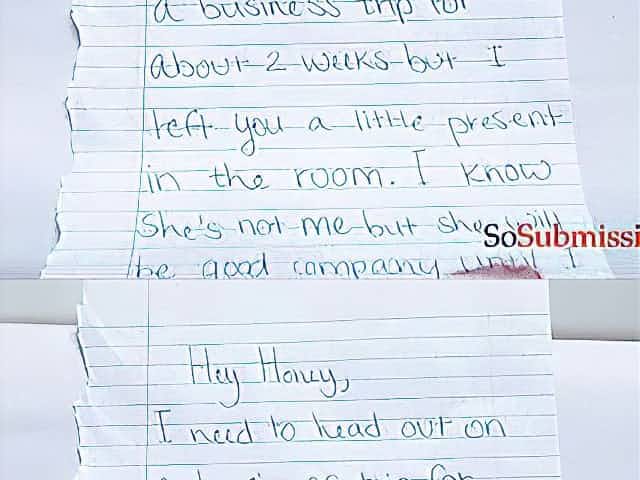 a business trip for
about 2 weeks but I
left you a little present
in the room. I know
she's not me but she will
SoSubmissi
be good company until I
Hey Honey,
I need to head out on
a business trip for